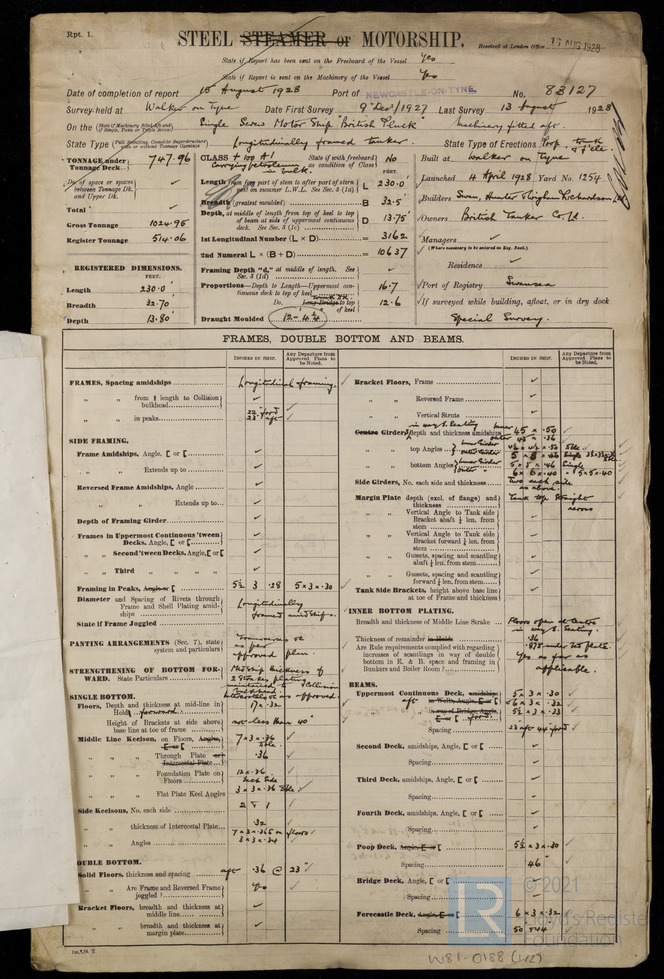 Rpt. 1.
STEEL STEAMER or MOTORSHIP.
Received at London Office 16 AUG 1928
State if Report has been sent on the Freeboard of the Vessel Yes
State if Report is sent on the Machinery of the Vessel Yes
Date of completion of report 15 August 1928 Port of NEWCASTLE-ON-TYNE. No. 83127
Survey held at Walker on Tyne Date First Survey 9 Dec/1927 Last Survey 13 August 1928
On the Single Screw Motor Ship "British Pluck" Machinery fitted aft.
State Type Longitudinally framed tanker. State Type of Erections Poop, trunk & f'cle.
TONNAGE under Tonnage Deck 747.96
Do. of space or spaces between Tonnage Dk. and Upper Dk.
Total
Gross Tonnage 1024.95
Register Tonnage 514.06
REGISTERED DIMENSIONS.
FEET.
Length 230.0
Breadth 32.70
Depth 13.80
CLASS + 100 A1 Carrying petroleum in bulk. State if with freeboard as condition of Class No
Length from fore part of stem to after part of stern post on summer L.W.L. See Sec. 3 (1a) L 230.0
Breadth (greatest moulded) B 32.5
Depth, at middle of length from top of keel to top of beam at side of uppermost continuous deck. See Sec. 3 (1c) D 13.75
1st Longitudinal Number (L × D) = 3162
2nd Numeral L × (B + D) = 10637
Framing Depth "d," at middle of length. See Sec. 3 (1d)
Proportions—Depth to Length—Uppermost continuous deck to top of keel 16.7
Do. Long Bridge to top of keel 12.6
Draught Moulded 12'-4¾"
Built at Walker on Tyne
Launched 4 April 1928 Yard No. 1254
Builders Swan, Hunter & Wigham Richardson Ltd
Owners British Tanker Co. Ld.
Managers
(Where necessary to be entered in Reg. Book.)
Residence
Port of Registry Swansea
If surveyed while building, afloat, or in dry dock
Special Survey.
FRAMES, DOUBLE BOTTOM AND BEAMS.
INCHES IN SHIP. Any Departure from Approved Plans to be Noted.
FRAMES, Spacing amidships Longitudinal framing.
" " from ⅕ length to Collision bulkhead
" " in peaks 22" ford 23" aft
SIDE FRAMING.
Frame Amidships, Angle, [ or [
" " Extends up to
Reversed Frame Amidships, Angle
" " Extends up to
Depth of Framing Girder
Frames in Uppermost Continuous 'tween Decks, Angle, [ or [
" " Second 'tween Decks, Angle, [ or [
" " Third " " " "
Framing in Peaks, Angle or [ 5½ 3 .28 5 × 3 × .30
Diameter and Spacing of Rivets through Frame and Shell Plating amidships Longitudinally framed amidships.
State if Frame Joggled
PANTING ARRANGEMENTS (Sec. 7), state system and particulars as per approved plan.
STRENGTHENING OF BOTTOM FORWARD. State Particulars Midship thickness of 2 Strakes plating maintained to Collision
SINGLE BOTTOM.
Floors, Depth and thickness at mid-line in Holds 17 × .32
Height of Brackets at side above base line at toe of frame not less than 40"
Middle Line Keelson, on Floors, Angles, [ or [ 7 × 3 × .34
" " " Through Plate or Intercostal Plate .36
" " " Foundation Plate on Floors 12 × .36
" " " Flat Plate Keel Angles 3 × 3 × .36 Dble.
Side Keelsons, No. each side 2 & 1
" " thickness of Intercostal Plate .32
" " Angles 3 × 3 × .34
DOUBLE BOTTOM.
Solid Floors, thickness and spacing aft .36 @ 23"
" " Are Frame and Reversed Frame joggled? Yes
Bracket Floors, breadth and thickness at middle line
" " breadth and thickness at margin plate
1m,4,28. T.
INCHES IN SHIP. Any Departure from Approved Plans to be Noted.
Bracket Floors, Frame
" " Reversed Frame
" " Vertical Struts
Centre Girder, depth and thickness amidships 45 × .50
" " top Angles
" " bottom Angles
Side Girders, No. each side and thickness Two each side as above.
Margin Plate depth (excl. of flange) and thickness Tank top straight across
" " Vertical Angle to Tank side Bracket abaft ¼ len. from stem
" " Vertical Angle to Tank side Bracket forward ¼ len. from stem
" " Gussets, spacing and scantling abaft ¼ len. from stem
" " Gussets, spacing and scantling forward ¼ len. from stem
Tank Side Brackets, height above base line at toe of Frame and thickness
INNER BOTTOM PLATING.
Breadth and Thickness of Middle Line Strake Floors open at Centre in way of Seating.
Thickness of remainder in Holds .36
Are Rule requirements complied with regarding increases of scantlings in way of double bottom in E. & B. space and framing in Bunkers and Boiler Room? Yes as far as applicable.
BEAMS.
Uppermost Continuous Deck, amidships 5 × 3 × .30
aft 6 × 3 × .32
ford. 5½ × 3 × .33
Spacing 23 aft 44 ford
Second Deck, amidships, Angle, [ or [
Spacing
Third Deck, amidships, Angle, [ or [
Spacing
Fourth Deck, amidships, Angle, [ or [
Spacing
Poop Deck, Angle, [ or [ 5½ × 3 × .30
Spacing 46"
Bridge Deck, Angle, [ or [
Spacing
Forecastle Deck, Angle, [ or [ 6 × 3 × .32
Spacing 50 & 44
© 2021
Lloyd's Register
Foundation
W81-0188 (1/2)